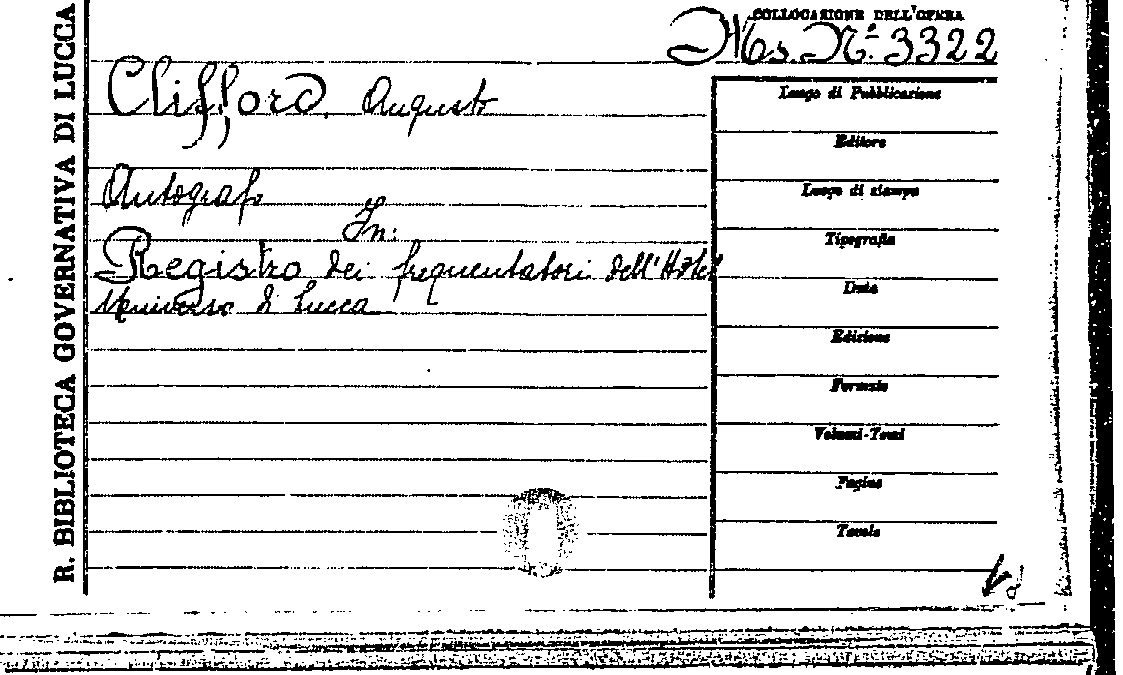 COLLOCAZIONE DELL'OPERA
Ms. N.º 3322
R. BIBLIOTECA GOVERNATIVA DI LUCCA
Clifford, Augusto
Autografo
In:
Registro dei frequentatori dell'Hôtel
Universo di Lucca
Luogo di Pubblicazione
Editore
Luogo di stampa
Tipografia
Data
Edizione
Formato
Volumi-Tomi
Pagine
Tavole